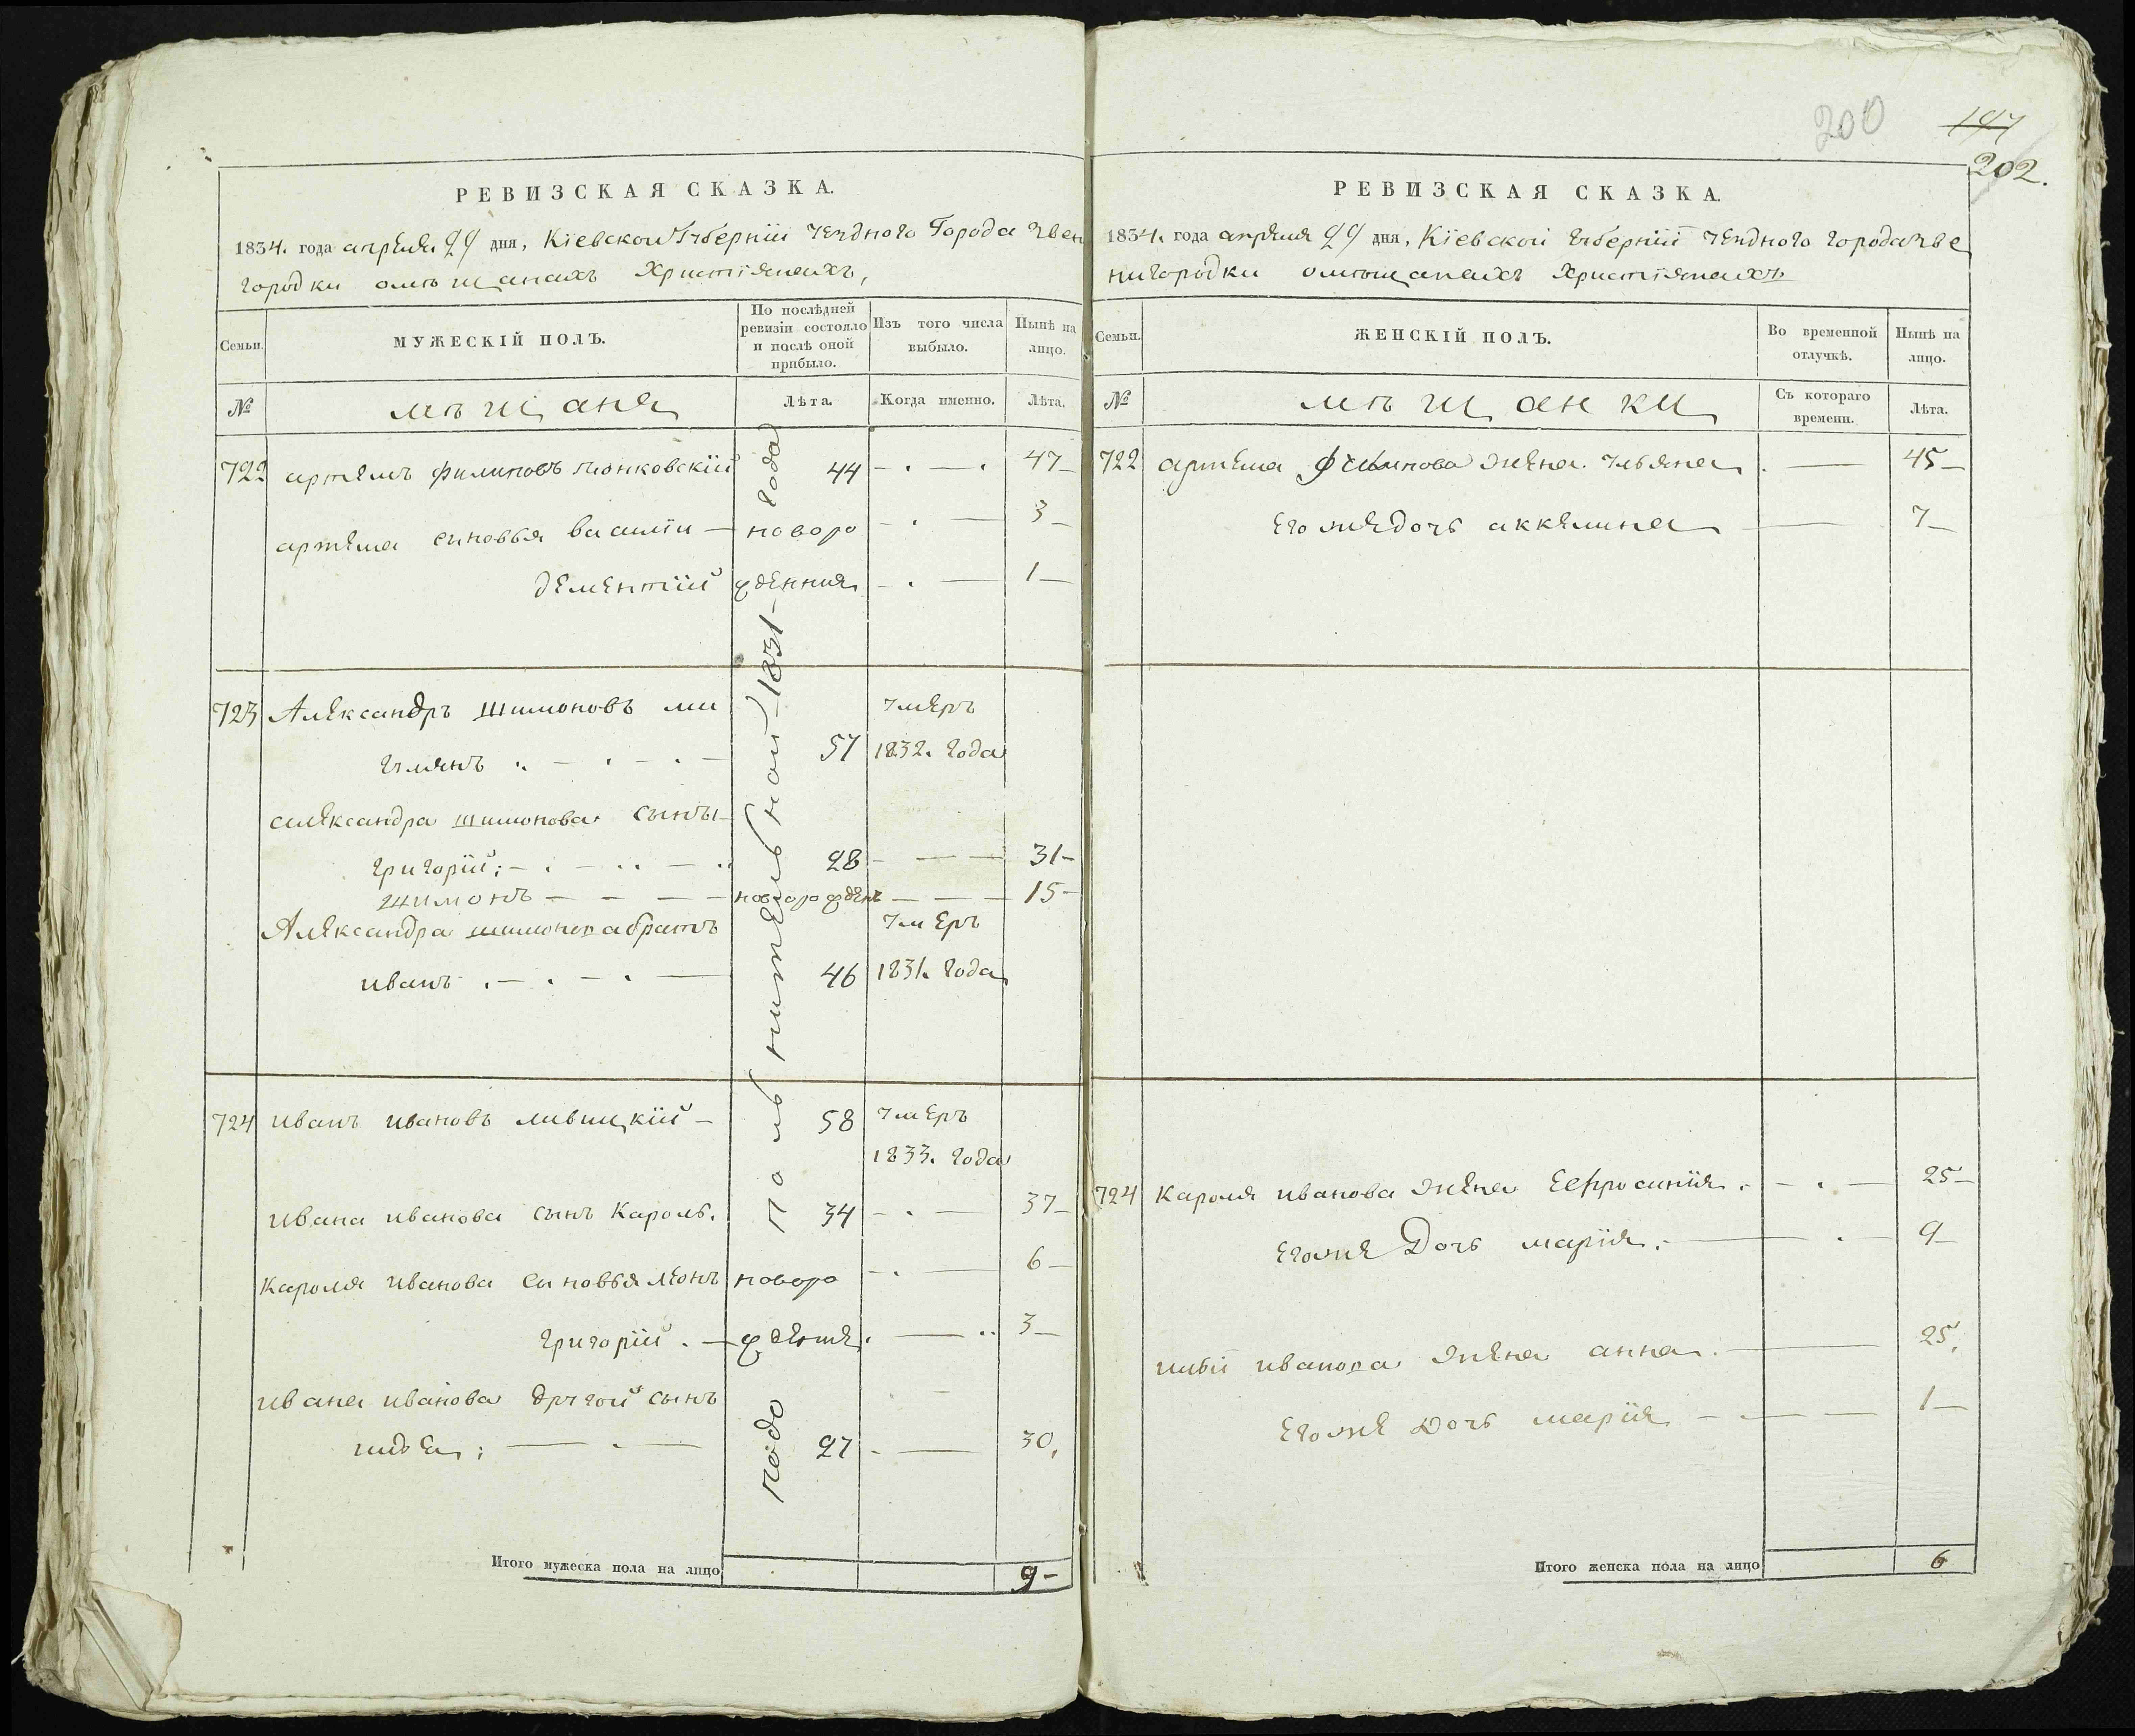 200
197
202.
РЕВИЗСКАЯ СКАЗКА.
1834. года апреля 29 дня, Кіевской Губерніи уездного Города Звен
городки о мѣщанахъ Христіянахъ,
Семьи. МУЖЕСКІЙ ПОЛЪ. По послѣдней ревизіи состояло и послѣ оной прибыло. Изъ того числа выбыло. Нынѣ на лицо.
№ мѣщаня Лѣта. Когда именно. Лѣта.
722 артемъ Филиповъ 44 47
артема синовья василіи новоро 3
дементий жденния 1
723 Александръ Шимоновъ ми умеръ
57 1832. года
александра шимонова сынъ
григорій 28 31
шимонъ новорожденъ 15
Александра шимонова братъ умеръ
иванъ 46 1831. года
724 иванъ ивановъ ливицкій 58 умеръ
1833. года
ивана иванова сынъ Кароль. 34 37
Кароля иванова синовья леонъ новоро 6
григорій ждение 3
ивана иванова другой сынъ
илья 27 30.
подополнительной 1831 года
Итого мужеска пола на лицо 9
РЕВИЗСКАЯ СКАЗКА.
1834. года апреля 29 дня, Кіевской губерніи уездного города Зве
нигородки о мѣщанахъ Христіянахъ
Семьи. ЖЕНСКІЙ ПОЛЪ. Во временной отлучкѣ. Нынѣ на лицо.
№ мѣщанки Съ котораго времени. Лѣта.
722 артема Филипова жена ульяна 45
его же дочь аккелина 7
724 Кароля иванова жена Ефросинія 25
его же Дочь марія 9
ильи иванова жена анна 25.
его же дочь марія 1
Итого женска пола на лицо 6